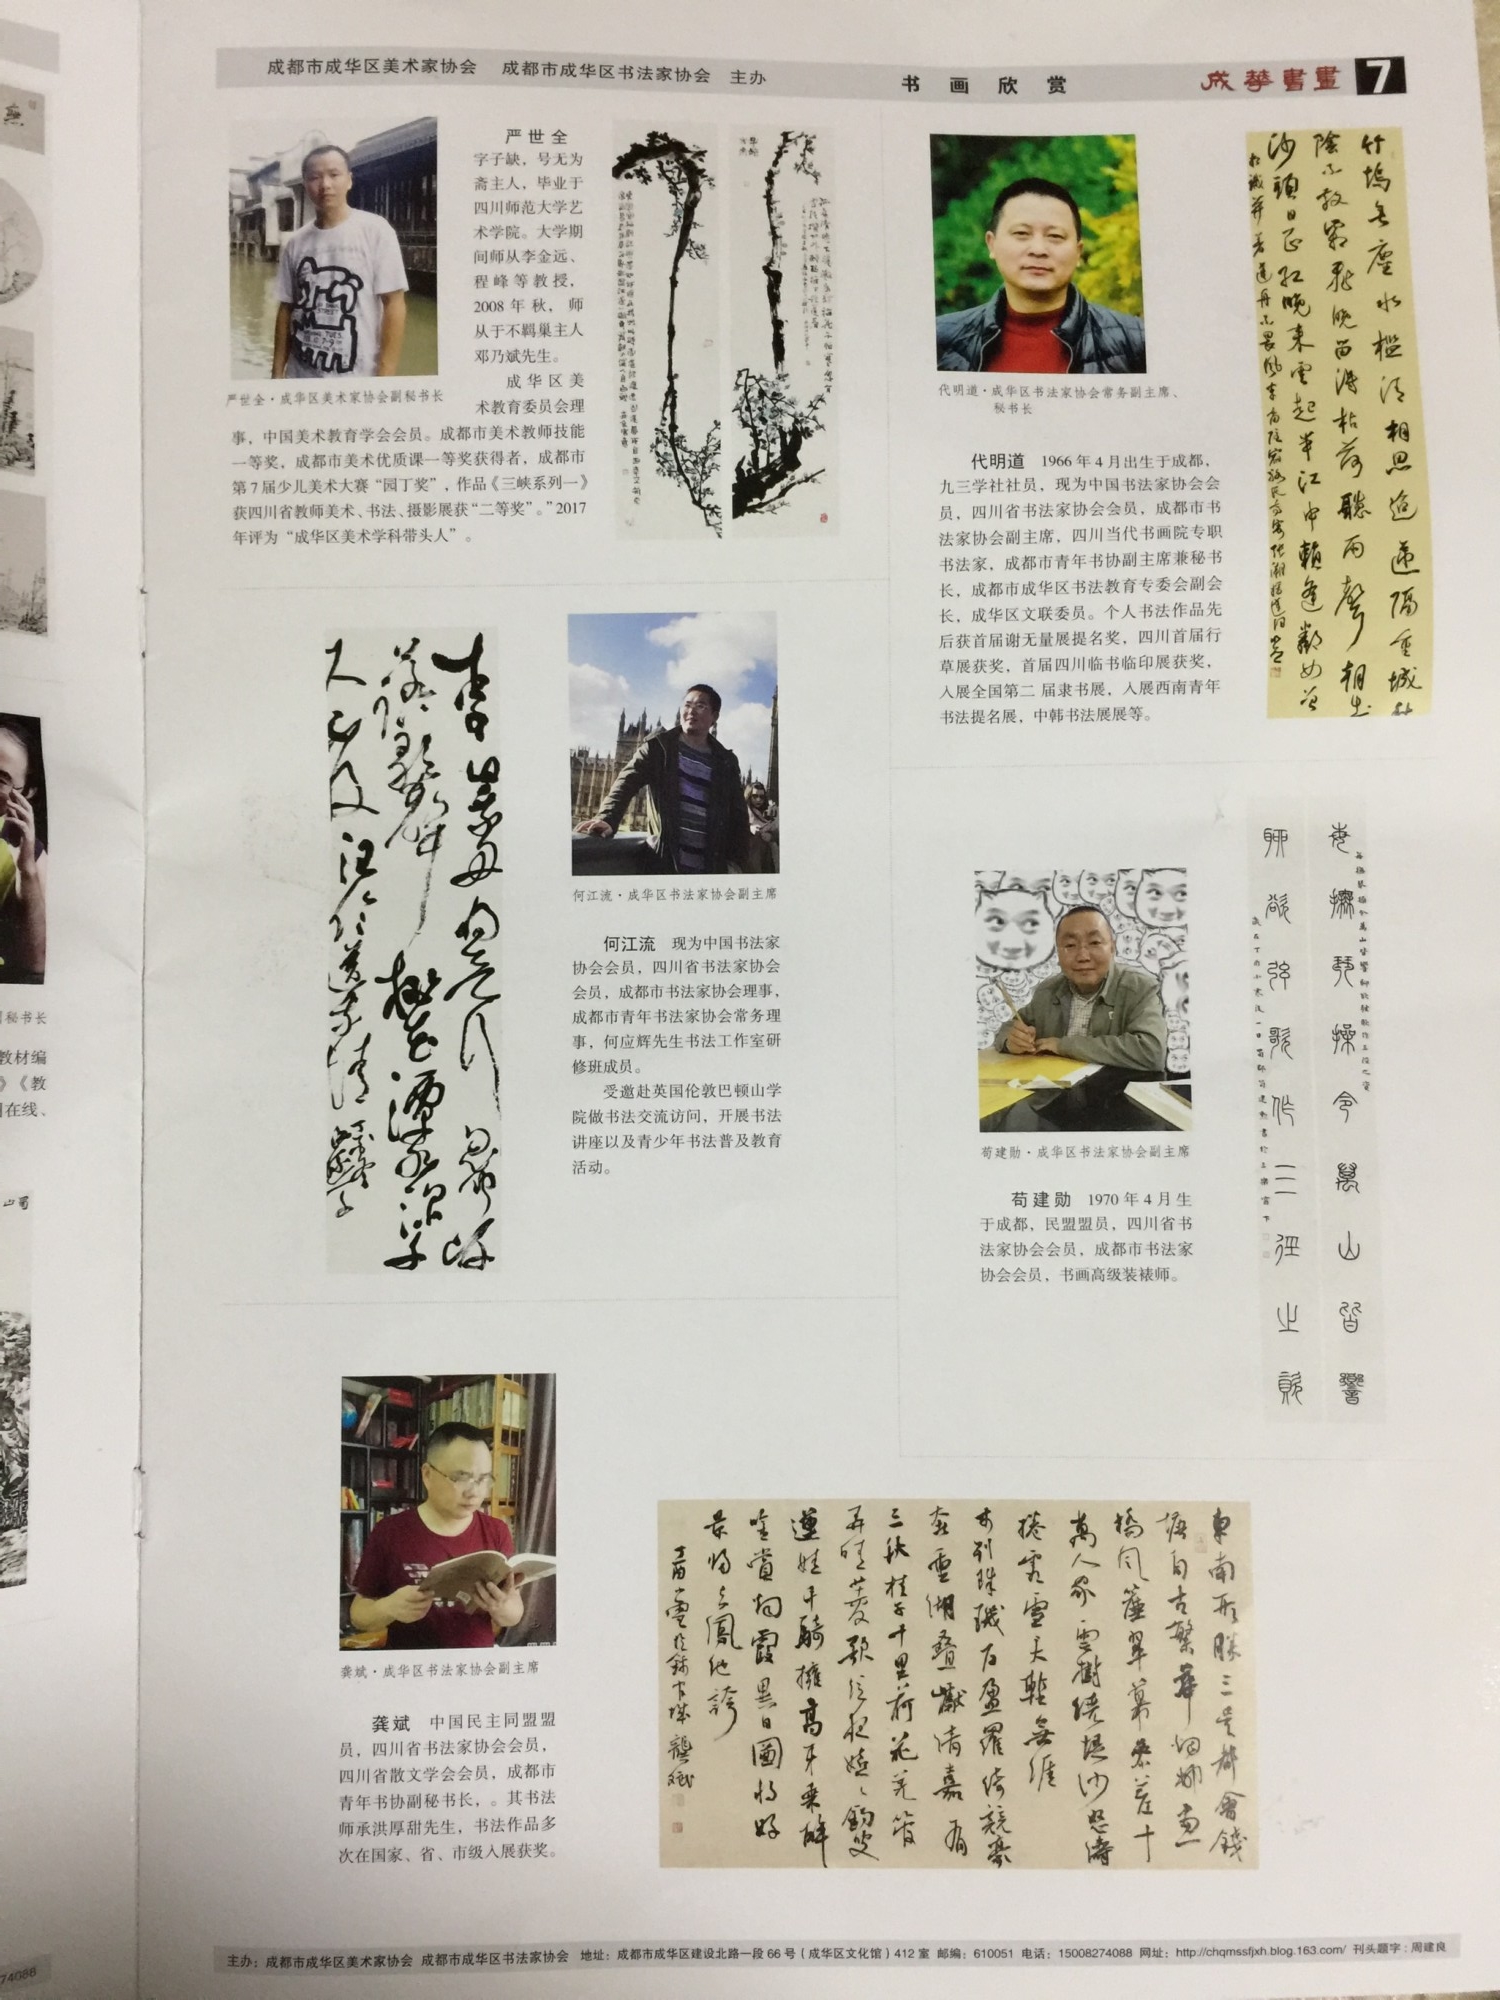 成都市成华区美术家协会 成都市成华区书法家协会 主办
书画欣赏
成華書畫
7
严世全
字子缺，号无为
斋主人，毕业于
四川师范大学艺
术学院。大学期
间师从李金远、
程峰等教授，
2008年秋，师
从于不羁巢主人
邓乃斌先生。
成华区美
术教育委员会理
事，中国美术教育学会会员。成都市美术教师技能
一等奖，成都市美术优质课一等奖获得者，成都市
第7届少儿美术大赛“园丁奖”，作品《三峡系列一》
获四川省教师美术、书法、摄影展获“二等奖”。”2017
年评为“成华区美术学科带头人”。
严世全·成华区美术家协会副秘书长
代明道·成华区书法家协会常务副主席、
秘书长
代明道 1966年4月出生于成都，
九三学社社员，现为中国书法家协会会
员，四川省书法家协会会员，成都市书
法家协会副主席，四川当代书画院专职
书法家，成都市青年书协副主席兼秘书
长，成都市成华区书法教育专委会副会
长，成华区文联委员。个人书法作品先
后获首届谢无量展提名奖，四川首届行
草展获奖，首届四川临书临印展获奖，
入展全国第二 届隶书展，入展西南青年
书法提名展，中韩书法展展等。
竹塢無塵水檻清相思迢遞隔重城秋
陰不散霜飛晚留得枯荷聽雨聲
何江流·成华区书法家协会副主席
何江流 现为中国书法家
协会会员，四川省书法家协会
会员，成都市书法家协会理事，
成都市青年书法家协会常务理
事，何应辉先生书法工作室研
修班成员。
受邀赴英国伦敦巴顿山学
院做书法交流访问，开展书法
讲座以及青少年书法普及教育
活动。
苟建勋·成华区书法家协会副主席
苟建勋 1970年4月生
于成都，民盟盟员，四川省书
法家协会会员，成都市书法家
协会会员，书画高级装裱师。
龚斌·成华区书法家协会副主席
龚斌 中国民主同盟盟
员，四川省书法家协会会员，
四川省散文学会会员，成都市
青年书协副秘书长，。其书法
师承洪厚甜先生，书法作品多
次在国家、省、市级入展获奖。
東南形勝三吳都會錢
塘自古繁華烟柳畫
橋風簾翠幕參差十
萬人家雲樹繞堤沙怒濤
捲霜雪天塹無涯
市列珠璣户盈羅綺競豪
奢重湖疊巘清嘉有
三秋桂子十里荷花羌管
弄晴菱歌泛夜嬉嬉釣叟
蓮娃千騎擁高牙乘醉
吟賞烟霞異日圖將好
景歸去鳳池誇
秘书长
教材编
》《教
在线、
主办：成都市成华区美术家协会 成都市成华区书法家协会 地址：成都市成华区建设北路一段66号（成华区文化馆）412室 邮编：610051 电话：15008274088 网址：http://chqmssfjxh.blog.163.com/ 刊头题字：周建良
74088